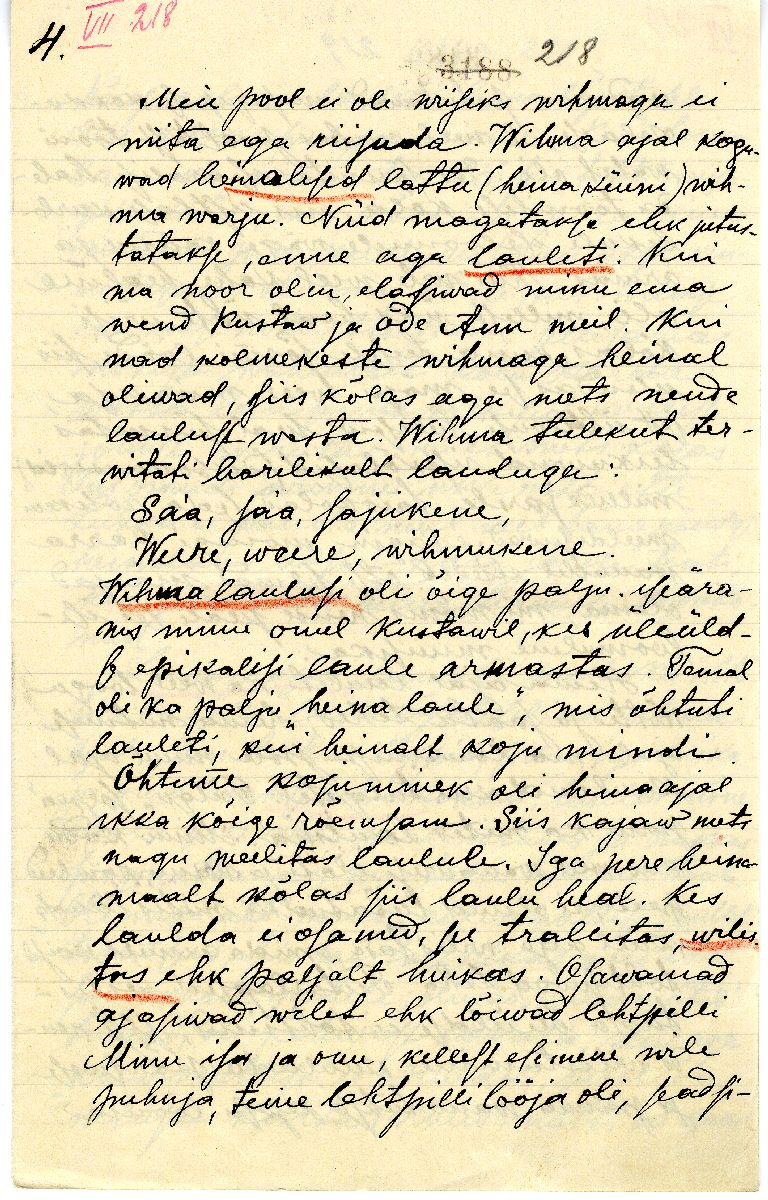 4. VII 218
3188 218
Meie pool ei ole wiisiks wihmaga ei
niita ega riisuda. Wihma ajal kogu-
wad heinalised lattu (heina küüni) wih-
ma warju. Nüid magatakse ehk jutus-
tatakse, enne aga lauleti. Kui
ma noor olin, elasiwad minu ema
wend Kustaw ja õde Ann meil. Kui
nad kolmekeste wihmaga heinal
oliwad, siis kõlas aga mets nende
laulust wasta. Wihma tulekut ter-
witati harilikult lauluga:
Saa, saa, sajukene,
Weere, weere, wihmukene.
Wihma laulusi oli õige palju. iseära-
nis minu onul Kustawil, kes üleüld-
se epikalisi laule armastas. Temal
oli ka palju "heina laule", mis õhtuti
lauleti, kui heinalt koju mindi
Õhtune kojuminek oli heinaajal
ikka kõige rõemsam. Siis kajaw mets
nagu meelitas laulule. Iga pere heina-
maalt kõlas siis laulu heal. Kes
laulda ei osanud, se trallitas, wilis-
tas ehk paljalt huikas. Osawamad
ajasiwad wilet ehk lõiwad lehtpilli
Minu isa ja onu, kellest esimene wile
puhuja, teine lehtpilli lööja oli, seadsi-